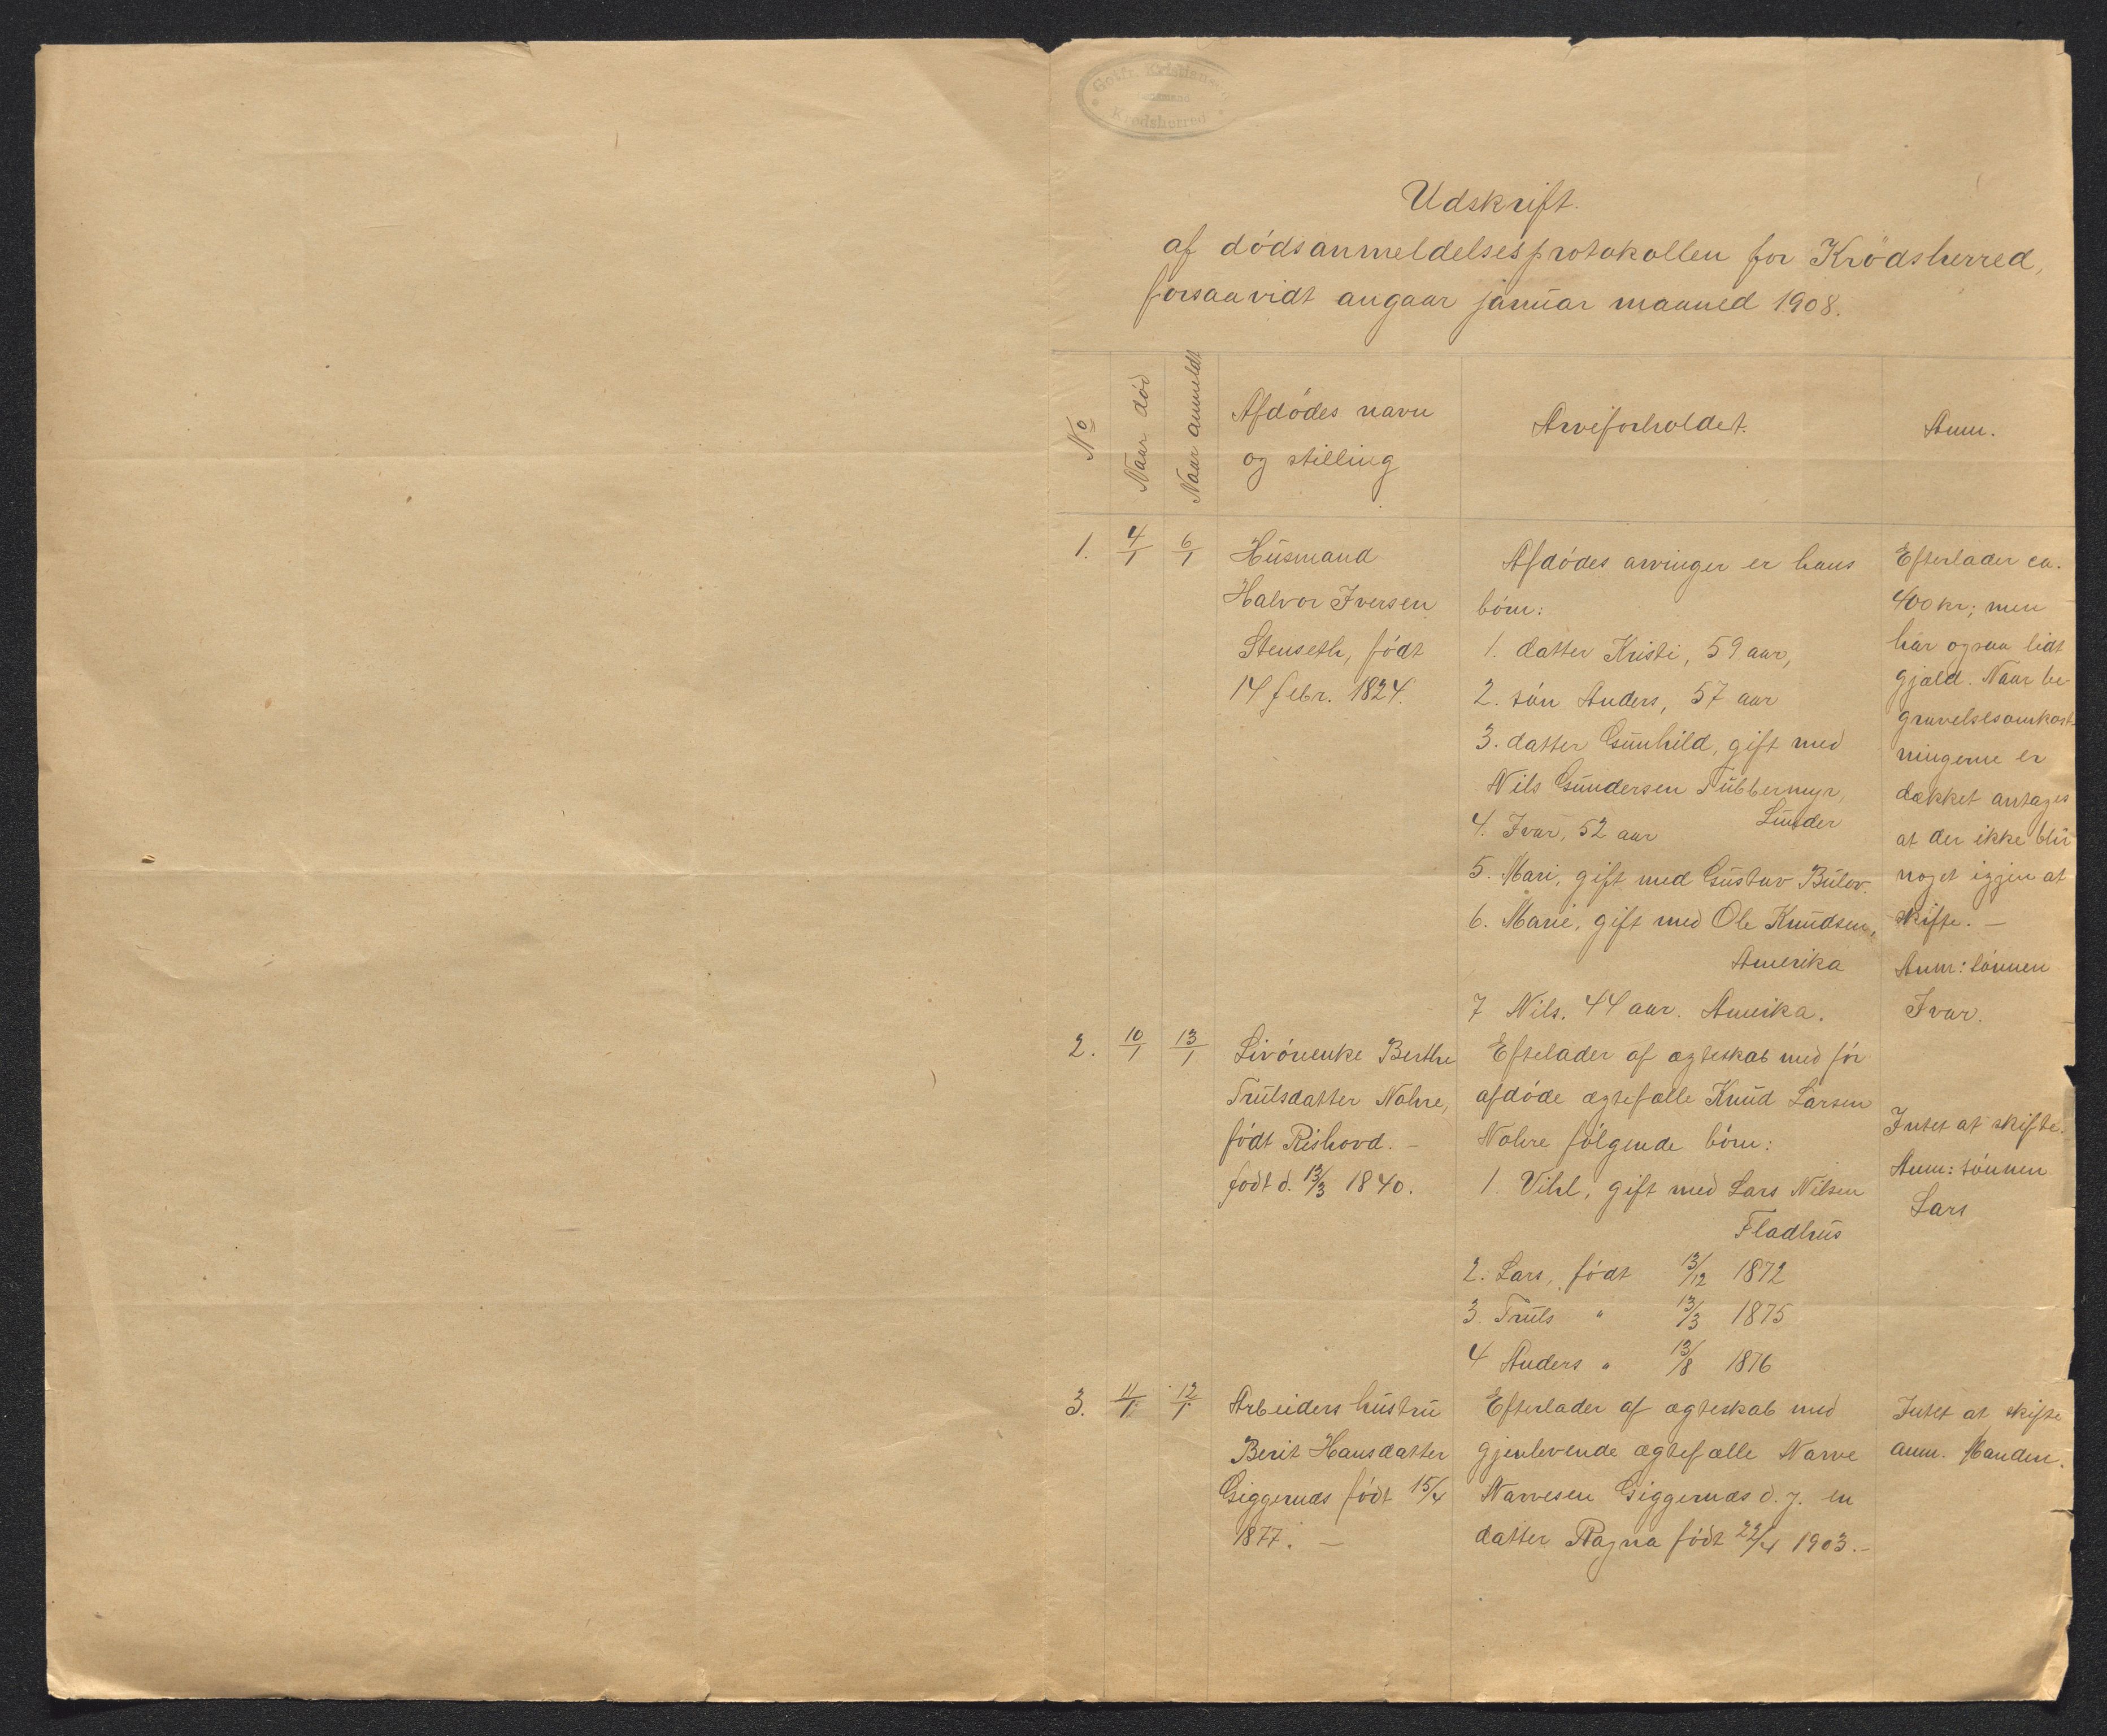 Gotfr. Kristiansen
Krødsherred
Udskrift.
af dødsanmeldelsesprotokollen for Krødsherred,
forsaavidt angaar januar maaned 1908.
No
Naar død
Naar anmeldt
Afdødes navn
og stilling
Arveforholdet.
Anm.
1.
4/1
6/1
Husmand
Halvor Iversen
Stenseth, født
14 febr. 1824.
Afdødes arvinger er hans
børn:
1. datter Kristi, 59 aar,
2. søn Anders, 57 aar
3. datter Gunhild, gift med
Nils Gundersen Tubbermyr,
Lunder
4. Ivar, 52 aar
5. Mari, gift med Gustav Bülov.
6. Marie, gift med Ole Knudsen,
Amerika
7 Nils. 44 aar. Amerika.
Efterlader ca.
400 kr; men
har ogsaa lidt
gjæld. Naar be-
gravelsesomkost-
ningerne er
dækket antages
at der ikke blir
noget igjen at
skifte. —
Anm: sønnen
Ivar.
2.
10/1
13/1
Livørenke Berthe
Trulsdatter Nohre,
født Rishovd. —
født d. 13/3 1840.
Eftelader af ægteskab med før
afdøde ægtefælle Knud Larsen
Nohre følgende børn:
1. Vibl, gift med Lars Nilsen
Fladhus
2. Lars, født 13/12 1872
3. Truls " 13/3 1875
4 Anders " 13/8 1876
Intet at skifte.
Anm: sønnen
Lars
3.
11/1
12/1
Arbeiders hustru
Berit Hansdatter
Giggeruds født 15/4
1877. —
Efterlader af ægteskab med
gjenlevende ægtefælle Narve
Narvesen Giggeruds d. y. en
datter Ragna født 22/4 1903.—
Intet at skifte
anm. Manden.